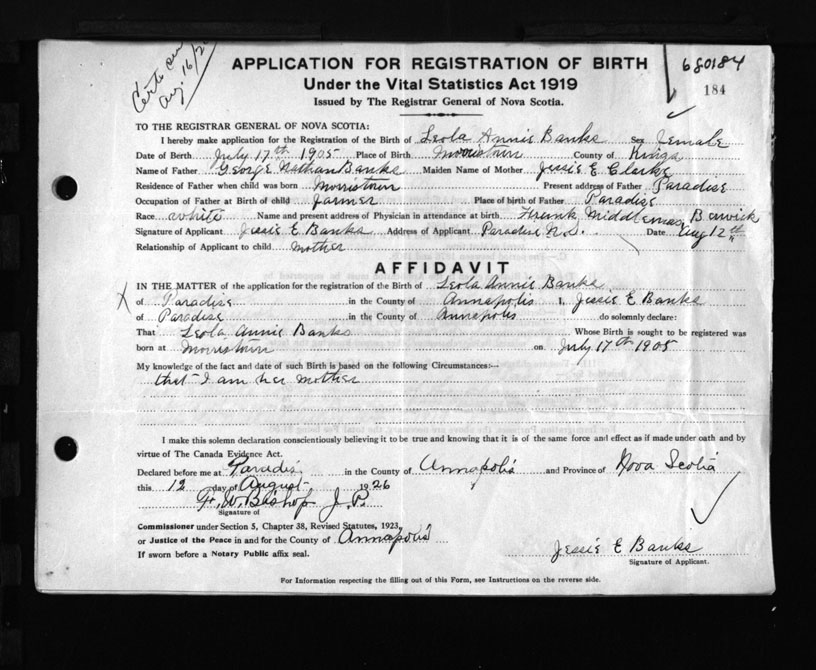 Aug. 16/26
APPLICATION FOR REGISTRATION OF BIRTH
680184
Under the Vital Statistics Act 1919
184
Issued by The Registrar General of Nova Scotia.
TO THE REGISTRAR GENERAL OF NOVA SCOTIA:
I hereby make application for the Registration of the Birth of Leola Annie Banks Sex Female
Date of Birth July 17th 1905 Place of Birth Morristown County of Kings
Name of Father George Nathan Banks Maiden Name of Mother Jessie E. Clarke
Residence of Father when child was born Morristown Present address of Father Paradise
Occupation of Father at Birth of child Farmer Place of birth of Father Paradise
Race white Name and present address of Physician in attendance at birth Middlemas Berwick
Signature of Applicant Jessie E Banks Address of Applicant Paradise N.S. Date Aug 12th
Relationship of Applicant to child mother
AFFIDAVIT
IN THE MATTER of the application for the registration of the Birth of Leola Annie Banks
X of Paradise in the County of Annapolis I, Jessie E Banks
of Paradise in the County of Annapolis do solemnly declare:
That Leola Annie Banks Whose Birth is sought to be registered was
born at Morristown on July 17th 1905
My knowledge of the fact and date of such Birth is based on the following Circumstances:—
that I am her mother
I make this solemn declaration conscientiously believing it to be true and knowing that it is of the same force and effect as if made under oath and by
virtue of The Canada Evidence Act.
Declared before me at Paradise in the County of Annapolis and Province of Nova Scotia
this 12 day of August 1926
F. W. Bishop J.P.
Signature of
Commissioner under Section 5, Chapter 38, Revised Statutes, 1923,
or Justice of the Peace in and for the County of Annapolis
If sworn before a Notary Public affix seal.
Jessie E Banks
Signature of Applicant.
For Information respecting the filling out of this Form, see Instructions on the reverse side.